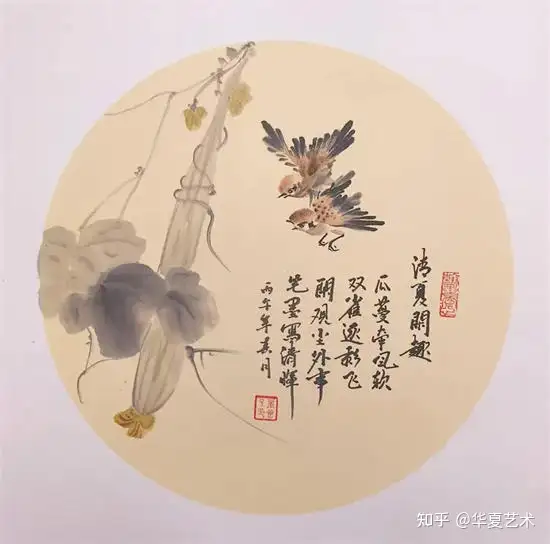 清夏閒趣
瓜蔓牵风软
双雀逐影飞
閒观尘外事
笔墨写清晖
丙午年春月
知乎 @华夏艺术